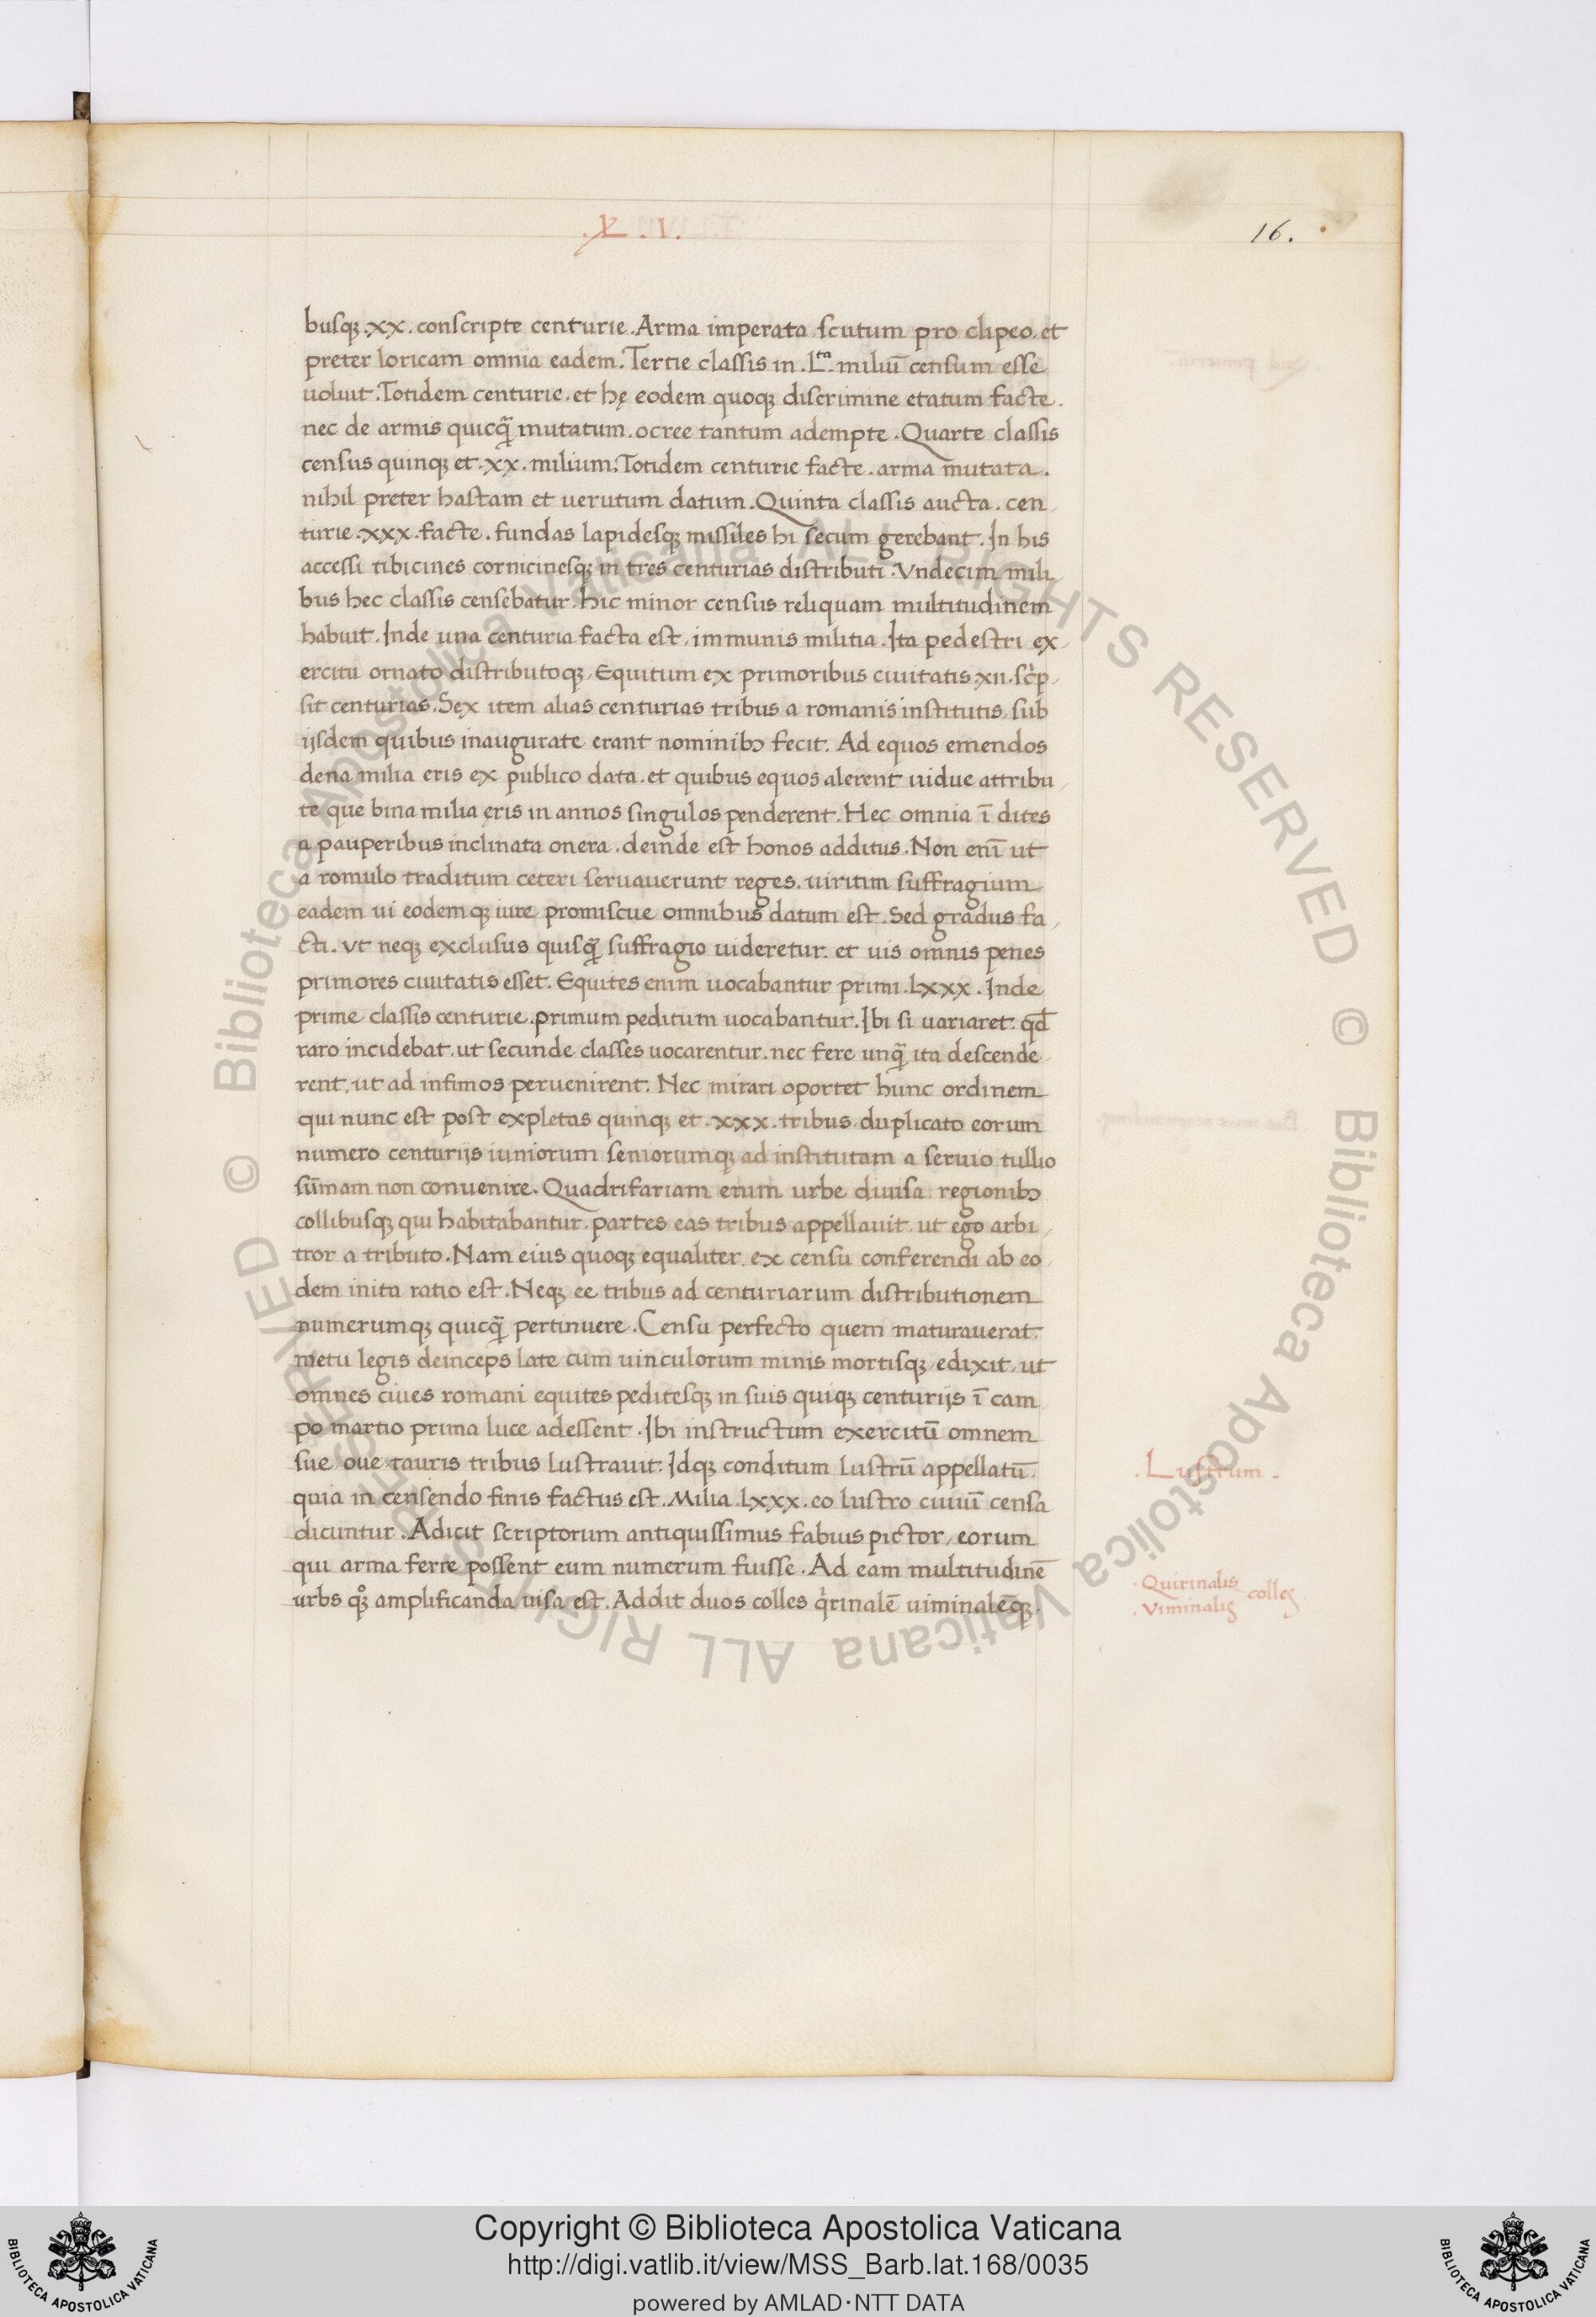 .L.I.
16.
busqꝫ .xx. conscripte centurie. Arma imperata scutum pro clipeo. et
preter loricam omnia eadem. Tertie classis in .Lta. miliū censum esse
uoluit. Totidem centurie. et hę eodem quoqꝫ discrimine etatum facte.
nec de armis quicq̄ mutatum. ocree tantum adempte. Quarte classis
census quinqꝫ et .xx. milium. Totidem centurie facte. arma mutata.
nihil preter hastam et uerutum datum. Quinta classis aucta. cen
turie .xxx. facte. fundas lapidesqꝫ missiles hi secum gerebant. In his
accessi tibicines cornicinesqꝫ in tres centurias distributi. Vndecim mili
bus hec classis censebatur. hic minor census reliquam multitudinem
habuit. Inde una centuria facta est, immunis militia. Ita pedestri ex
ercitu ornato distributoqꝫ, Equitum ex primoribus ciuitatis .xii. sc̓p
sit centurias. Sex item alias centurias tribus a romanis institutis, sub
ijsdem quibus inaugurate erant nominibꝫ fecit. Ad equos emendos
dena milia eris ex publico data. et quibus equos alerent uidue attribu
te que bina milia ęris in annos singulos penderent. Hec omnia ī dites
a pauperibus inclinata onera. deinde est honos additus. Non enī ut
a romulo traditum ceteri seruauerunt reges. uiritim suffragium
eadem ui eodemqꝫ iure promiscue omnibus datum est. Sed gradus fa
cti. vt neqꝫ exclusus quisq̄ suffragio uideretur. et uis omnis penes
primores ciuitatis esset. Equites enim uocabantur primi .Lxxx. Inde
prime classis centurie. primum peditum uocabantur. Ibi si uariaret. qd̄
raro incidebat. ut secunde classes uocarentur. nec fere unq̄ ita descende
rent, ut ad infimos peruenirent. Nec mirari oportet hunc ordinem
qui nunc est post expletas quinqꝫ et .xxx. tribus, duplicato eorum
numero centurijs iuniorum seniorumqꝫ ad institutam a seruio tullio
sūmam non conuenire. Quadrifariam enim urbe diuisa regionibꝫ
collibusqꝫ qui habitabantur. partes eas tribus appellauit. ut ego arbi
tror a tributo. Nam eius quoqꝫ equaliter ex censu conferendi ab eo
dem inita ratio est. Neqꝫ ee tribus ad centuriarum distributionem
numerumqꝫ quicq̄ pertinuere. Censu perfecto quem maturauerat.
metu legis deinceps late cum uinculorum minis mortisqꝫ, edixit, ut
omnes ciues romani equites peditesqꝫ in suis quiqꝫ centurijs ī cam
po martio prima luce adessent. Ibi instructum exercitū omnem
sue oue tauris tribus lustrauit. Idqꝫ conditum lustrū appellatū.
quia in censendo finis factus est. Milia .Lxxx. eo lustro ciuiū censa
dicuntur. Adicit scriptorum antiquissimus fabius pictor, eorum
qui arma ferre possent eum numerum fuisse. Ad eam multitudinē
urbs qꝫo amplificanda uisa est. Addit duos colles q̓rinalē uiminalēqꝫ.
. Lustrum .
. Quirinalis
. Viminalis
colles
© Biblioteca Apostolica Vaticana ALL RIGHTS RESERVED © Biblioteca Apostolica Vaticana ALL RIGHTS RESERVED
Copyright © Biblioteca Apostolica Vaticana
http://digi.vatlib.it/view/MSS_Barb.lat.168/0035
powered by AMLAD·NTT DATA
BIBLIOTECA APOSTOLICA VATICANA
BIBLIOTECA APOSTOLICA VATICANA